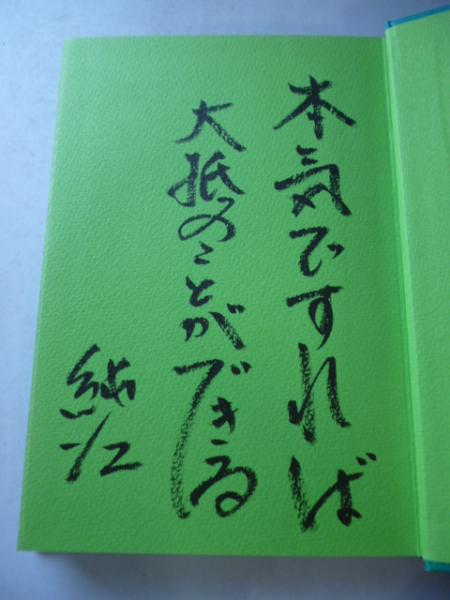 本気ですれば
大抵のことができる
純江